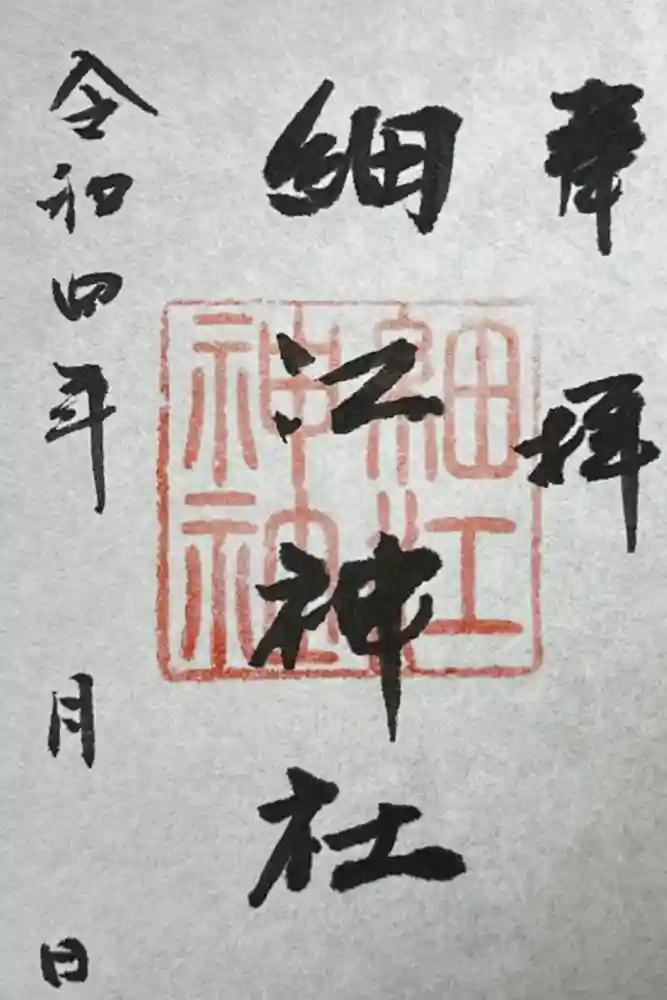 奉拝
細江神社
細江神社
令和四年 月 日